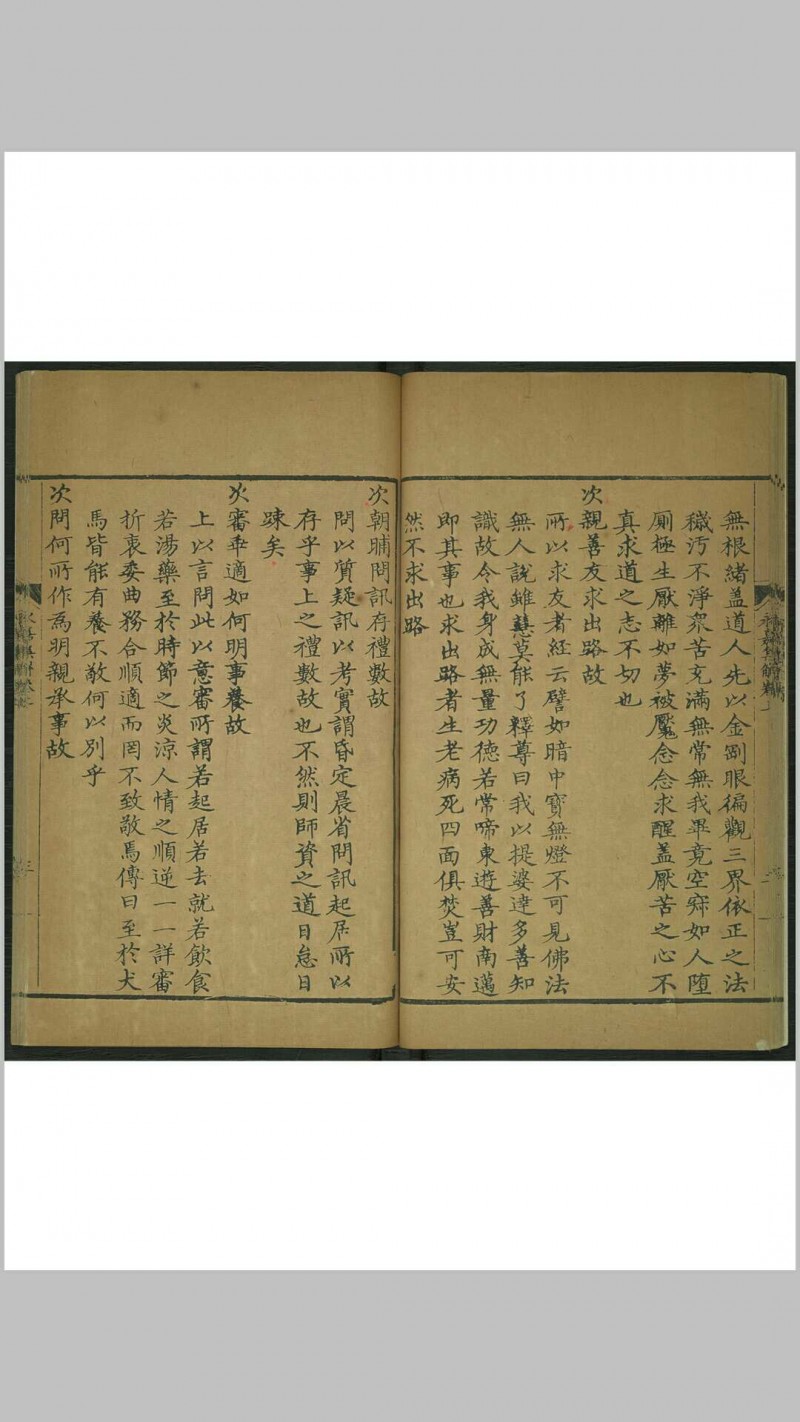 無根緒盖道人先以金剛眼徧觀三界依正之法
穢汚不淨衆苦充滿無常無我畢竟空寂如人堕
厠極生厭離如夢被魘念念求醒盖厭苦之心不
真求道之志不切也
次親善友求出路故
所以求友者經云譬如暗中寶無燈不可見佛法
無人說雖慧莫能了釋尊曰我以提婆達多善知
識故令我身成無量功德若常啼東遊善財南邁
即其事也求出路者生老病死四面俱焚豈可安
然不求出路
次朝晡問訊存禮數故
問以質疑訊以考實謂昏定晨省問訊起居所以
存乎事上之禮數故也不然則師資之道日怠日
踈矣
次審乖適如何明事養故
上以言問此以意審所謂若起居若去就若飲食
若湯藥至於時節之炎涼人情之順逆一一詳審
折衷委曲務合順適而罔不致敬焉傳曰至於犬
馬皆能有養不敬何以別乎
次問何所作爲明親承事故